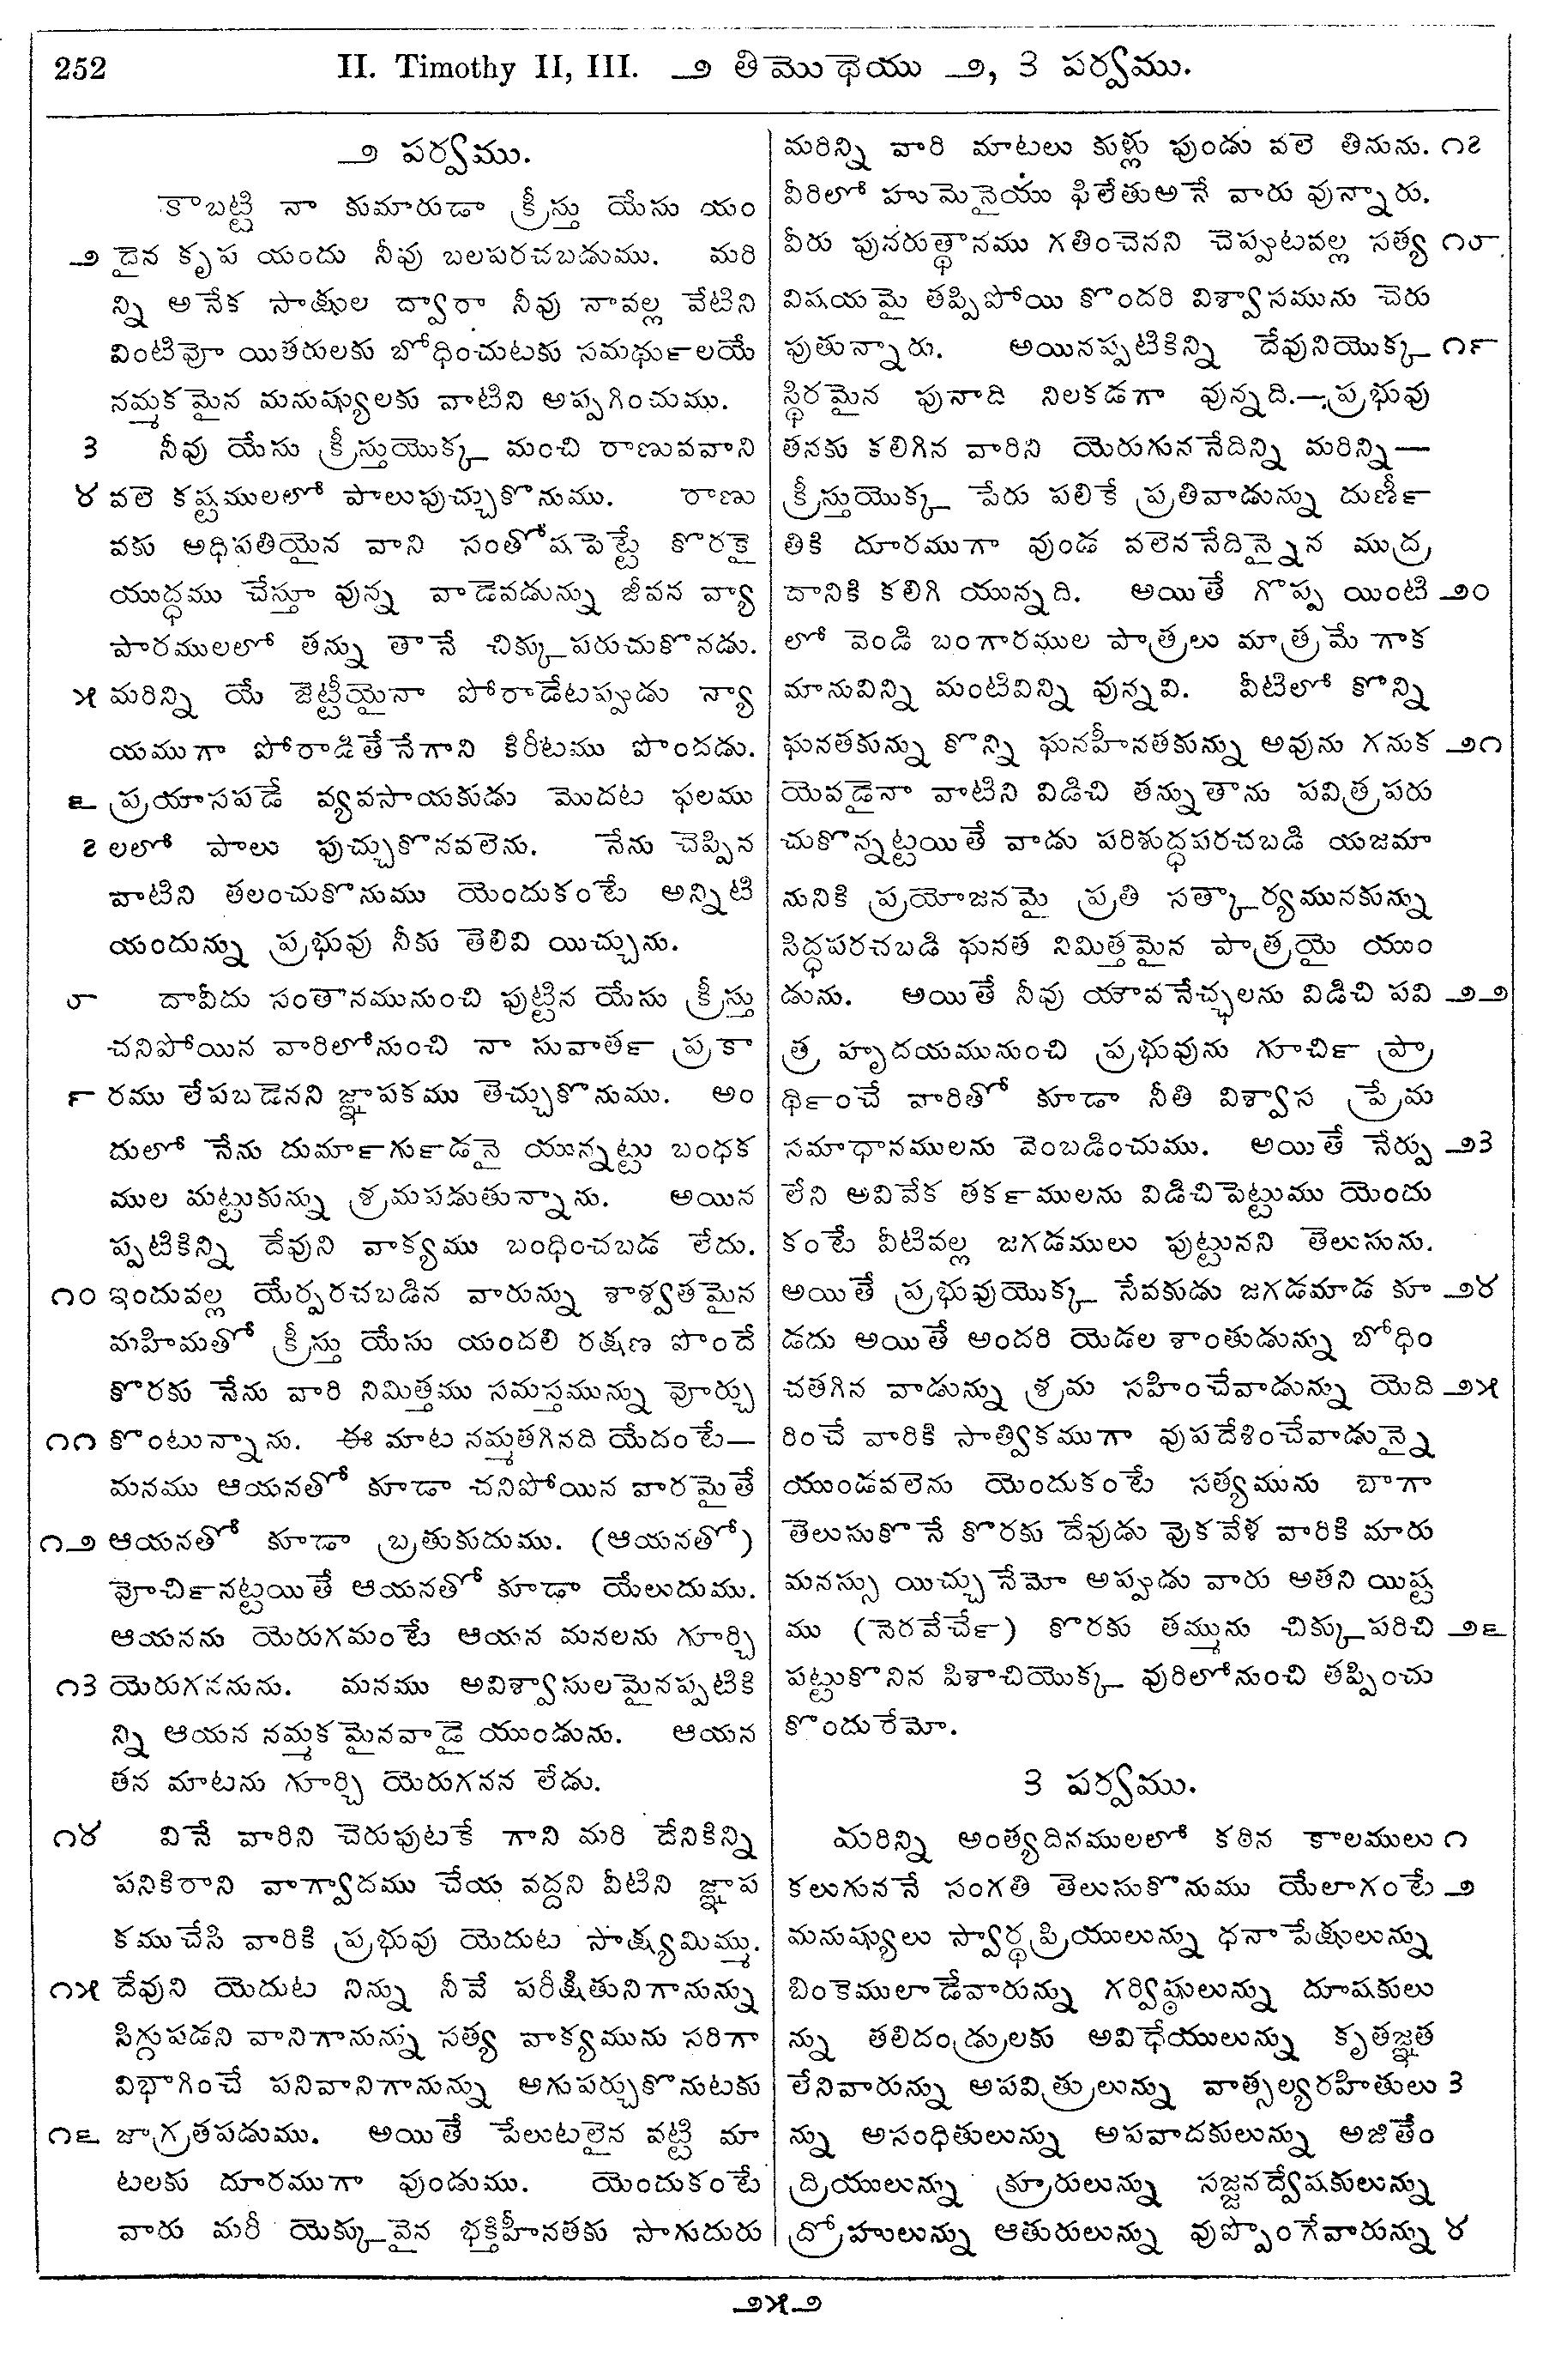 252 II. Timothy II, III. ౨ తిమొథెయు ౨, ౩ పర్వము.
౨ పర్వము.
కాబట్టి నా కుమారుడా క్రీస్తు యేసు యం
౨ దైన కృప యందు నీవు బలపరచబడుము. మరి
న్ని అనేక సాక్షుల ద్వారా నీవు నావల్ల వేటిని
వింటివో యితరులకు బోధించుటకు సమథుల౯యే
నమ్మకమైన మనుష్యులకు వాటిని అప్పగించుము.
౩ నీవు యేసు క్రీస్తుయొక్క మంచి రాణువవాని
౪ వలె కష్టములలో పాలుపుచ్చుకొనుము. రాణు
వకు అధిపతియైన వాని సంతోషపెట్టే కొరకై
యుద్ధము చేస్తూ వున్న వాడెవడున్ను జీవన వ్యా
పారములలో తన్ను తానే చిక్కుపరుచుకొనడు.
౫ మరిన్ని యే జెట్టీయైనా పోరాడేటప్పుడు న్యా
యముగా పోరాడితేనేగాని కిరీటము పొందడు.
౬ ప్రయాసపడే వ్యవసాయకుడు మొదట ఫలము
౭ లలో పాలు పుచ్చుకొనవలెను. నేను చెప్పిన
వాటిని తలంచుకొనుము యెందుకంటే అన్నిటి
యందున్ను ప్రభువు నీకు తెలివి యిచ్చును.
౮ దావీదు సంతానమునుంచి పుట్టిన యేసు క్రీస్తు
చనిపోయిన వారిలోనుంచి నా సువాత౯ ప్రకా
౯ రము లేపబడెనని జ్ఞాపకము తెచ్చుకొనుము. అం
దులో నేను దుమా౯గు౯డనై యున్నట్టు బంధక
ముల మట్టుకున్ను శ్రమపడుతున్నాను. అయిన
ప్పటికిన్ని దేవుని వాక్యము బంధించబడ లేదు.
౧౦ ఇందువల్ల యేర్పరచబడిన వారున్ను శాశ్వతమైన
మహిమతో క్రీస్తు యేసు యందలి రక్షణ పొందే
కొరకు నేను వారి నిమిత్తము సమస్తమున్ను వోర్చు
౧౧ కొంటున్నాను. ఈ మాట నమ్మతగినది యేదంటే—
మనము ఆయనతో కూడా చనిపోయిన వారమైతే
౧౨ ఆయనతో కూడా బ్రతుకుదుము. (ఆయనతో)
వోచి౯నట్టయితే ఆయనతో కూడా యేలుదుము.
ఆయనను యెరుగమంటే ఆయన మనలను గూర్చి
౧౩ యెరుగననును. మనము అవిశ్వాసులమైనప్పటికి
న్ని ఆయన నమ్మకమైనవాడై యుండును. ఆయన
తన మాటను గూర్చి యెరుగనన లేడు.
౧౪ వినే వారిని చెరుపుటకే గాని మరి దేనికిన్ని
పనికిరాని వాగ్వాదము చేయ వద్దని వీటిని జ్ఞాప
కముచేసి వారికి ప్రభువు యెదుట సాక్ష్యమిమ్ము.
౧౫ దేవుని యెదుట నిన్ను నీవే పరీక్షితునిగానున్ను
సిగ్గుపడని వానిగానున్ను సత్య వాక్యమును సరిగా
విభాగించే పనివానిగానున్ను అగుపర్చుకొనుటకు
౧౬ జాగ్రతపడుము. అయితే పేలుటలైన వట్టి మా
టలకు దూరముగా వుండుము. యెందుకంటే
వారు మరీ యెక్కువైన భక్తిహీనతకు సాగుదురు
మరిన్ని వారి మాటలు కుళ్లు పుండు వలె తినును. ౧౭
వీరిలో హుమెనైయు ఫిలేతుఅనే వారు వున్నారు.
వీరు పునరుత్థానము గతించెనని చెప్పుటవల్ల సత్య ౧౮
విషయమై తప్పిపోయి కొందరి విశ్వాసమును చెరు
పుతున్నారు. అయినప్పటికిన్ని దేవునియొక్క ౧౯
స్థిరమైన పునాది నిలకడగా వున్నది.—ప్రభువు
తనకు కలిగిన వారిని యెరుగుననేదిన్ని మరిన్ని—
క్రీస్తుయొక్క పేరు పలికే ప్రతివాడున్ను దుణీ౯
తికి దూరముగా వుండ వలెననేదిన్నైన ముద్ర
దానికి కలిగి యున్నది. అయితే గొప్ప యింటి ౨౦
లో వెండి బంగారముల పాత్రలు మాత్రమే గాక
మానువిన్ని మంటివిన్ని వున్నవి. వీటిలో కొన్ని
ఘనతకున్ను కొన్ని ఘనహీనతకున్ను అవును గనుక ౨౧
యెవడైనా వాటిని విడిచి తన్నుతాను పవిత్రపరు
చుకొన్నట్టయితే వాడు పరిశుద్ధపరచబడి యజమా
నునికి ప్రయోజనమై ప్రతి సత్కార్యమునకున్ను
సిద్ధపరచబడి ఘనత నిమిత్తమైన పాత్రయై యుం
డును. అయితే నీవు యౌవనేచ్ఛలను విడిచి పవి ౨౨
త్ర హృదయమునుంచి ప్రభువును గూచి౯ ప్రా
థి౯ంచే వారితో కూడా నీతి విశ్వాస ప్రేమ
సమాధానములను వెంబడించుము. అయితే నేర్పు ౨౩
లేని అవివేక తక౯ములను విడిచిపెట్టుము యెందు
కంటే వీటివల్ల జగడములు పుట్టునని తెలుసును.
అయితే ప్రభువుయొక్క సేవకుడు జగడమాడ కూ ౨౪
డదు అయితే అందరి యెడల శాంతుడున్ను బోధిం
చతగిన వాడున్ను శ్రమ సహించేవాడున్ను యెది ౨౫
రించే వారికి సాత్వికముగా వుపదేశించేవాడున్నై
యుండవలెను యెందుకంటే సత్యమును బాగా
తెలుసుకొనే కొరకు దేవుడు వొకవేళ వారికి మారు
మనస్సు యిచ్చునేమో అప్పుడు వారు అతని యిష్ట
ము (నెరవేచే౯) కొరకు తమ్మును చిక్కుపరిచి ౨౬
పట్టుకొనిన పిశాచియొక్క వురిలోనుంచి తప్పించు
కొందురేమో.
౩ పర్వము.
మరిన్ని అంత్యదినములలో కఠిన కాలములు ౧
కలుగుననే సంగతి తెలుసుకొనుము యేలాగంటే ౨
మనుష్యులు స్వార్థప్రియులున్ను ధనాపేక్షులున్ను
బింకెములాడేవారున్ను గర్విష్ఠులున్ను దూషకులు
న్ను తలిదండ్రులకు అవిధేయులున్ను కృతజ్ఞత
లేనివారున్ను అపవిత్రులున్ను వాత్సల్యరహితులు ౩
న్ను అసంధితులున్ను అపవాదకులున్ను అజితేం
ద్రియులున్ను క్రూరులున్ను సజ్జనద్వేషకులున్ను
ద్రోహులున్ను ఆతురులున్ను వుప్పొంగేవారున్ను ౪
౨౫౨